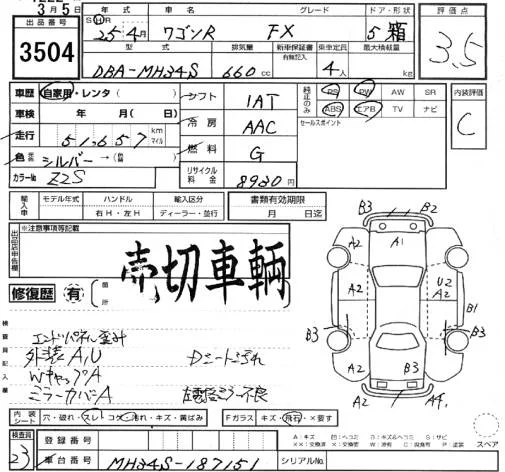 3月5日
出品番号
3504
年式 車名 グレード ドア・形状
SHR 25年4月 ワゴンR FX 5 箱
評価点
3.5
型式 排気量 新車保証書 有無記入 乗車定員 最大積載量
DBA-MH34S 660cc 4人 kg
車歴 自家用・レンタ( )
車検 年 月( 日)
走行 51,657 km マイル
色 シルバー →( )
カラーNo Z2S
シフト IAT
冷房 AAC
燃料 G
リサイクル料金 8920円
純正のみ PS PW AW SR
ABS エアB TV ナビ
セールスポイント
内装評価
C
輸入車 モデル年式 ハンドル 輸入区分
右H・左H ディーラー・並行
書類有効期限
月 日迄
出品店申告欄
※注意事項等記載
売切車輌
修復歴 有 箇所
検査員記入欄
エンドパネル歪み
外装A,U Dシート汚れ
WキャップA
ミラーカバーA
B3 B2
A2 A1 A2
A2 U2 A2 B1
B3 B3
A2 B3
A2 A4
内装シート 穴・破れ・スレ・コゲ・汚れ・キズ・黄ばみ
Fガラス キズ・飛石・×要す
A:キズ
スペア
検査員
23
登録番号
車台番号 MH34S-187151 シリアルNo.